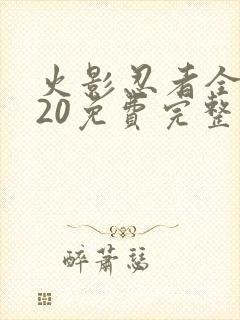 火影忍者全
20免费完整
醉萧瑟